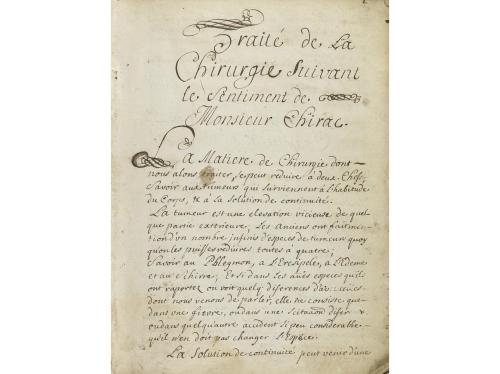 Traité de La
Chirurgie Suivant
le Sentiment de
Monsieur Chirac.
La Matiere de Chirurgie dont
nous alons traiter, se peut réduire à deux Chefs,
Savoir aux tumeurs qui surviennent à l'habitude
du Corps, & à la Solution de continuité.
La tumeur est une elevation vicieuse de quel
que partie exterieure, Les Anciens ont fait men
tion d'un nombre infinis d'especes de tumeur quoy
qu'on les puisse réduire toutes à quatre;
Savoir au Phlegmon, a l'Eresipele, a l'Edeme
et au Schirre, Et si dans les autres especes qu'ils
ont raportez on voit quelq; diferences d'avec celles
dont nous venons de parler, elle ne consiste que
dans une fievre, ou dans une
ou dans quelqu'autre accident si peu considerable
qu'il n'en doit pas changer l'Espece.
La Solution de continuité peut venir d'une